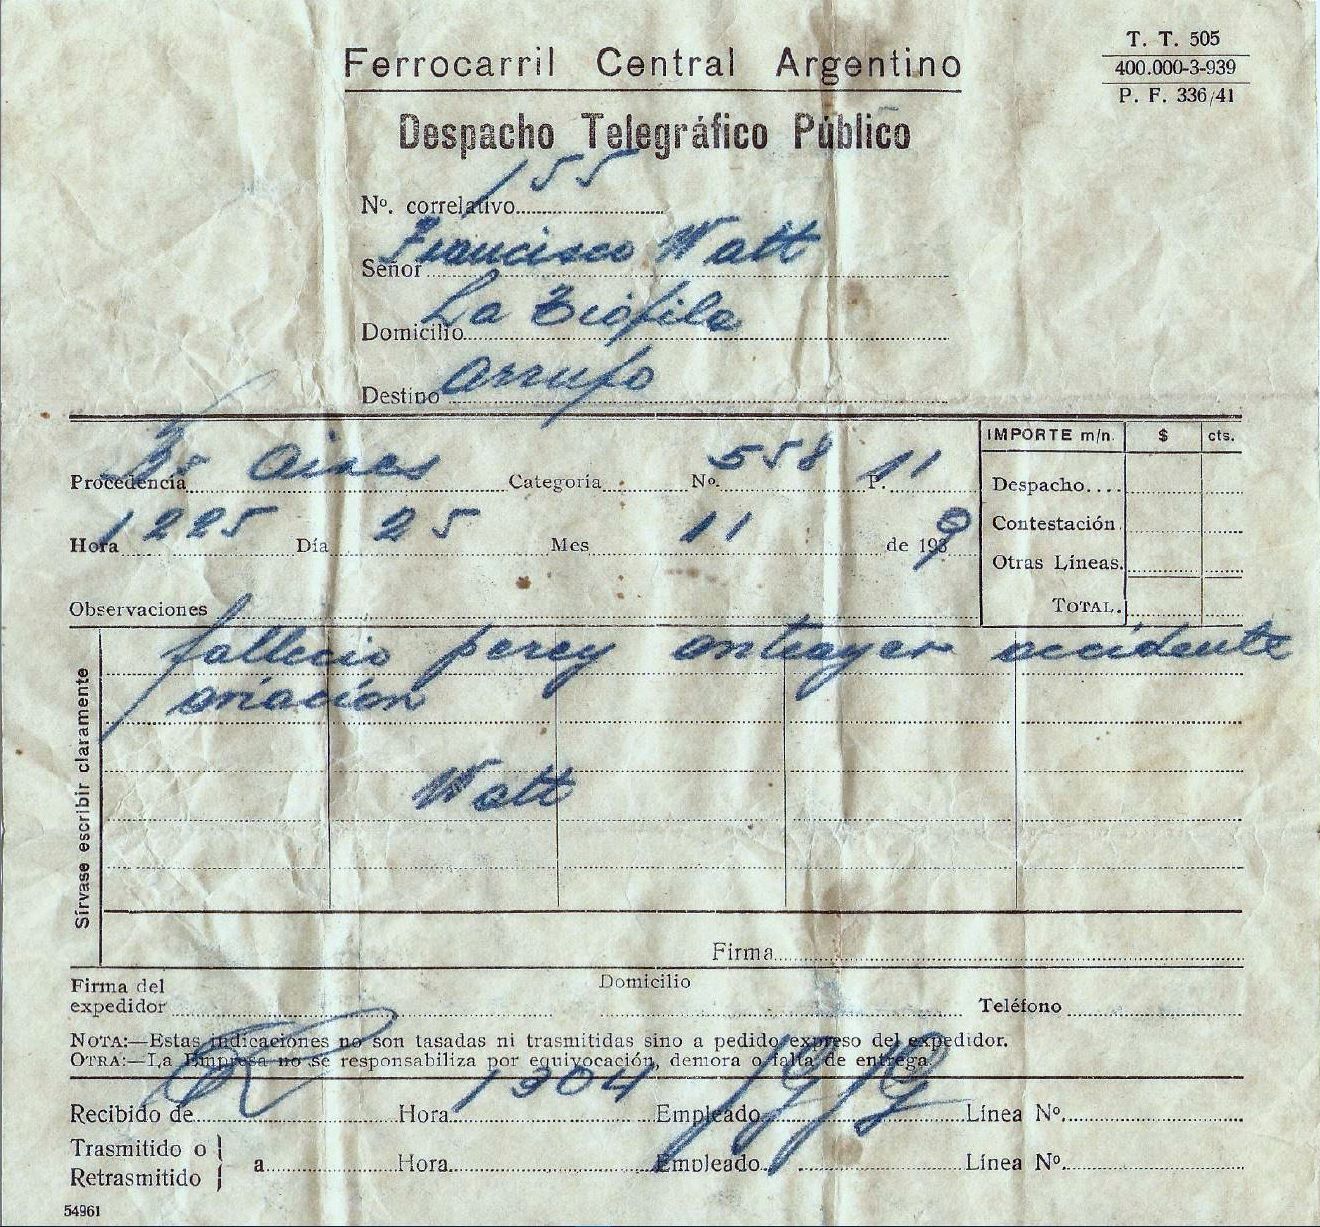 Ferrocarril Central Argentino
T. T. 505
400.000-3-939
P. F. 336/41
Despacho Telegráfico Público
Nº. correlativo 155
Señor Francisco Watt
Domicilio La
Destino Arrufo
Procedencia Bs Aires Categoría Nº. 558 P. 11
Hora 1225 Día 25 Mes 11 de 1939
Observaciones
IMPORTE m/n. $ cts.
Despacho....
Contestación
Otras Líneas.
TOTAL.
Sírvase escribir claramente
fallecio percy anteayer accidente
aviacion
Watt
Firma
Firma del
expedidor Domicilio Teléfono
NOTA:—Estas indicaciones no son tasadas ni trasmitidas sino a pedido expreso del expedidor.
OTRA:—La Empresa no se responsabiliza por equivocación, demora o falta de entrega
Recibido de Hora 1304 Empleado Línea Nº.
Trasmitido o
Retrasmitido } a Hora Empleado Línea Nº.
54961